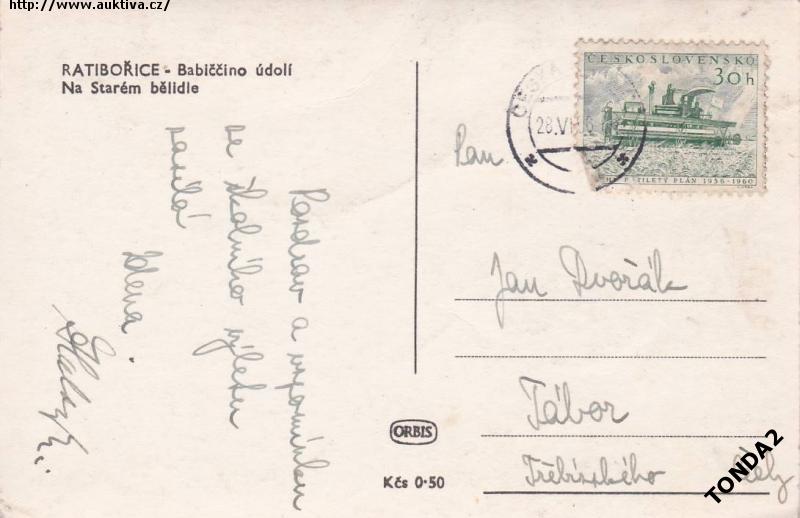 http://www.auktiva.cz/
RATIBOŘICE - Babiččino údolí
Na Starém bělidle
Pozdrav a vzpomínku
se školního výletu
zasílá
Zdena
ČESKOSLOVENSKO
30h
PĚTILETÝ PLÁN 1956-1960
ČESKÁ
28.VI
Pan
Jan Dvořák
Tábor
Třebízského
ORBIS
Kčs 0·50
TONDA2